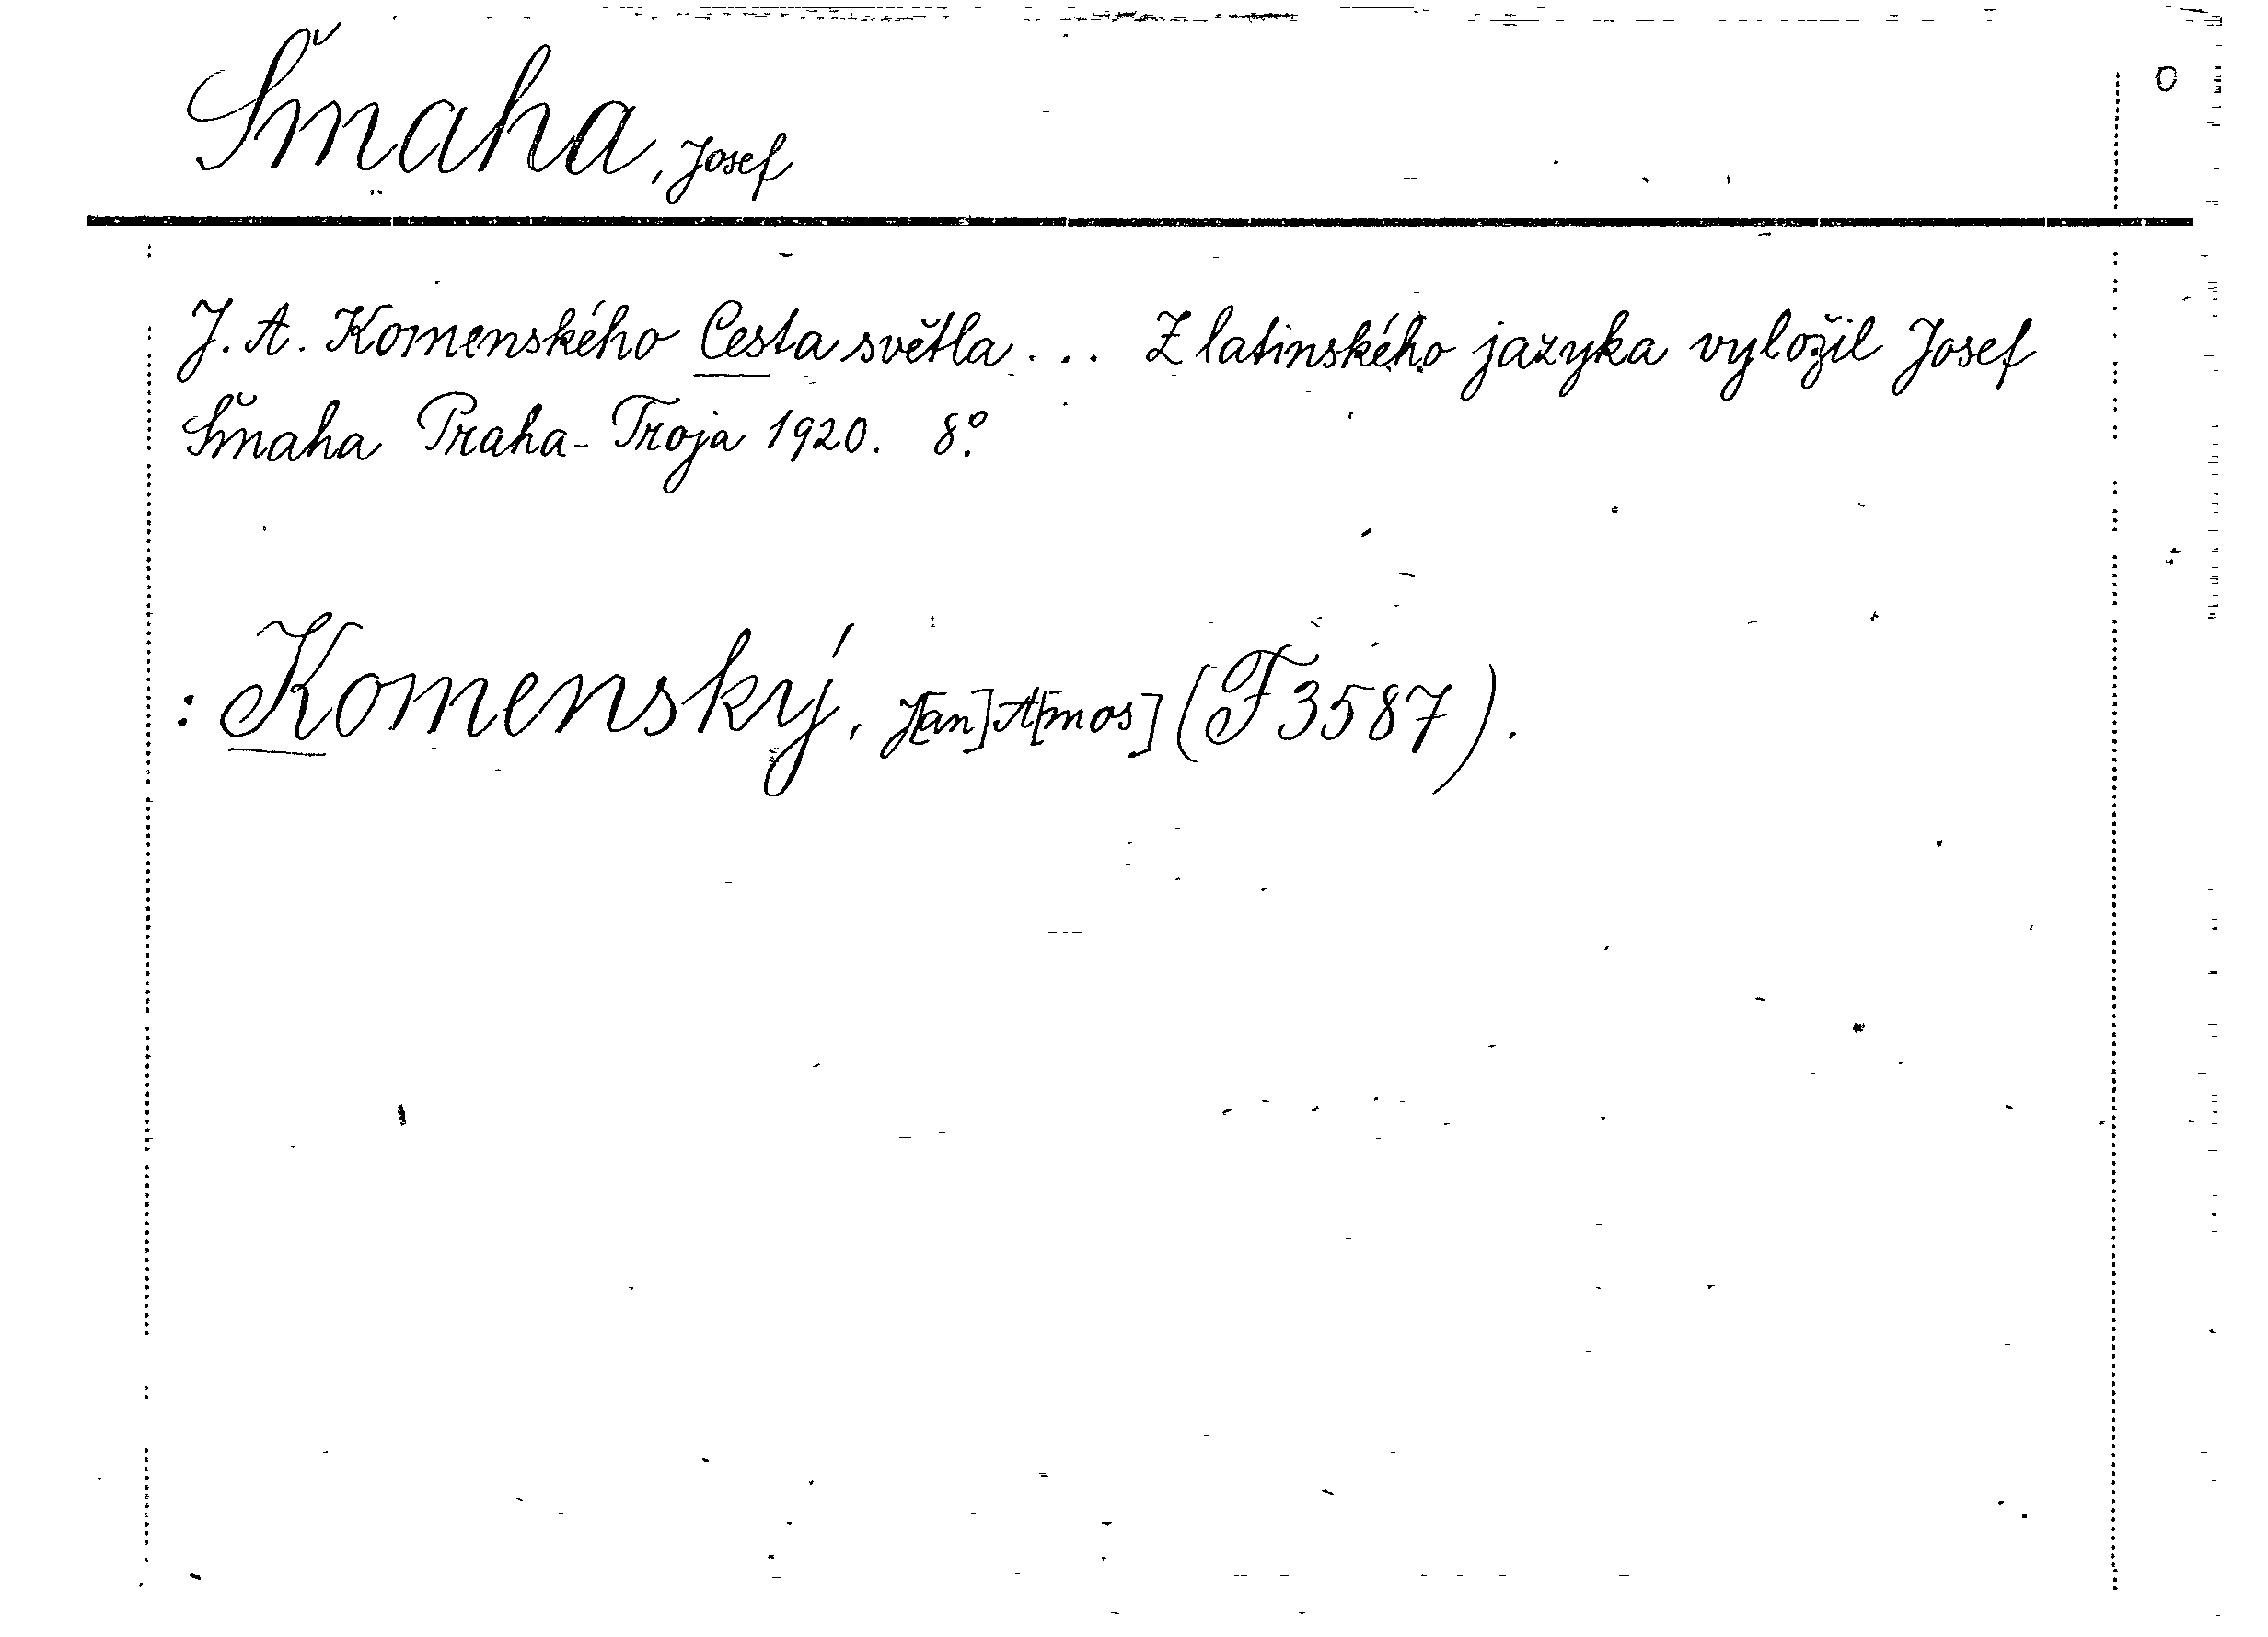 Šmaha, Josef
O
J. A. Komenského Cesta světla ... Z latinského jazyka vyložil Josef
Šmaha Praha-Troja 1920. 8°.
: Komenský, J[an] A[mos] (F 3587).